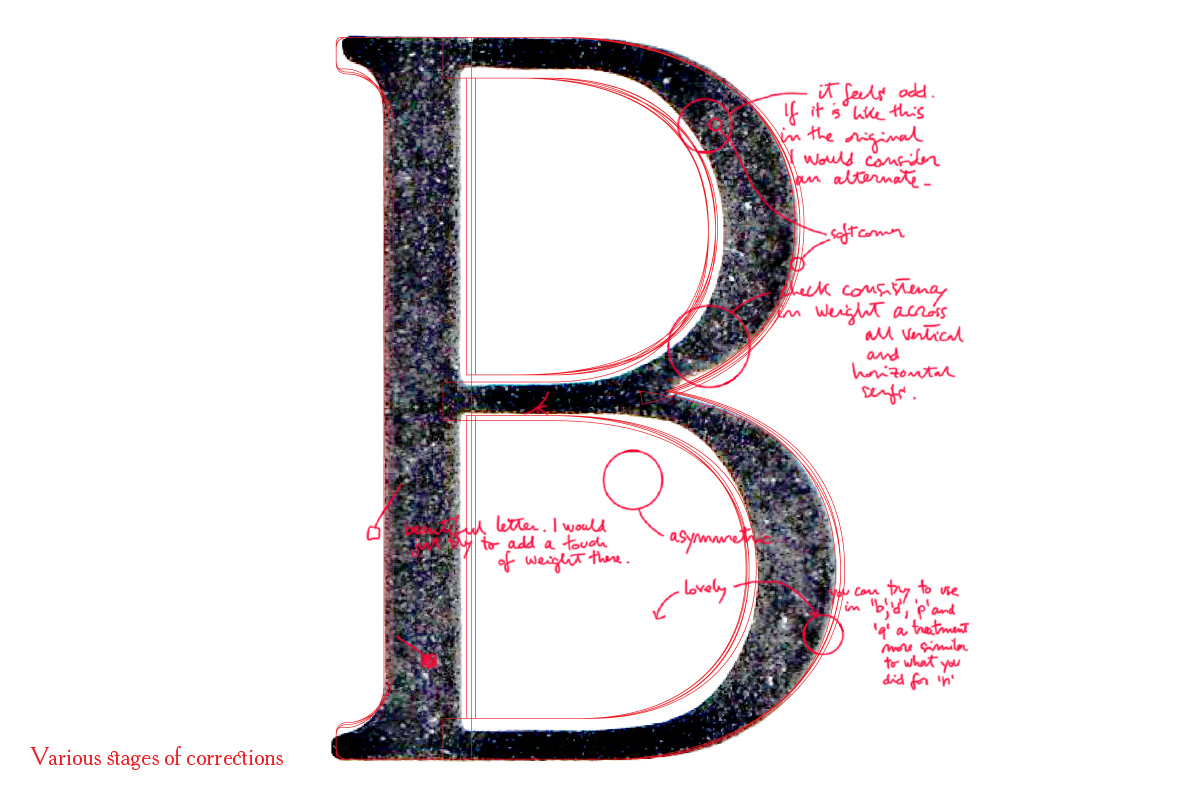 B
it feels odd.
If it is like this
in the original
I would consider
an alternate_
soft corner
check consistency
in weight across
all vertical
and
horizontal
serifs.
beautiful letter. I would
just try to add a touch
of weight there.
asymmetric
lovely
you can try to use
in 'b', 'd', 'p' and
'q' a treatment
more similar
to what you
did for 'n'
Various stages of corrections